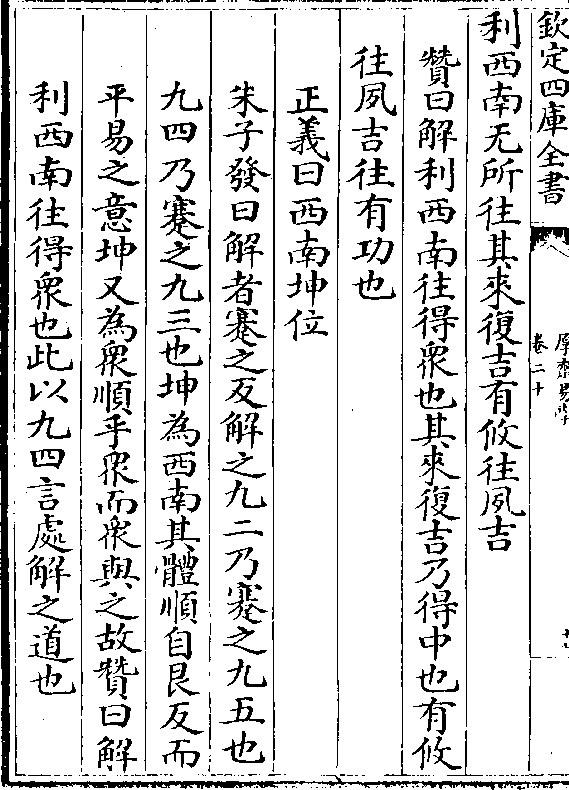 欽定四庫全書
厚齋易學
卷二十
利西南无所往其來復吉有攸往夙吉
贊曰解利西南往得衆也其來復吉乃得中也有攸
往夙吉往有功也
正義曰西南坤位
朱子發曰解者蹇之反解之九二乃蹇之九五也
九四乃蹇之九三也坤為西南其體順自艮反而
平易之意坤又為衆順乎衆而衆與之故贊曰解
利西南往得衆也此以九四言處解之道也